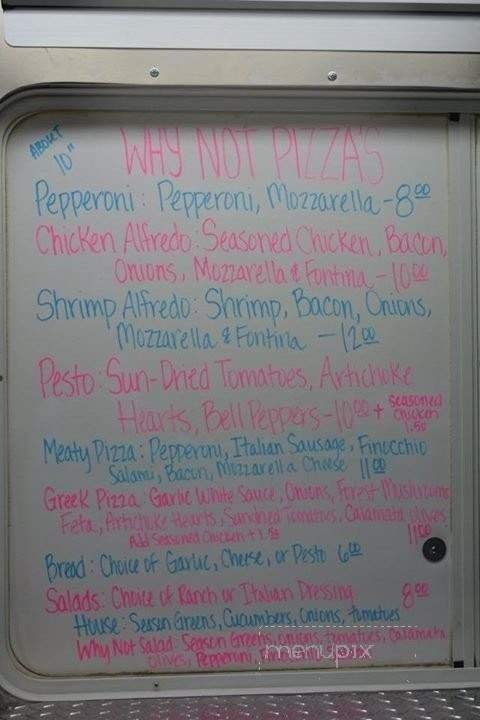 ABOUT
10"
WHY NOT PIZZA'S
Pepperoni: Pepperoni, Mozzarella - 8.00
Chicken Alfredo: Seasoned Chicken, Bacon,
Onions, Mozzarella & Fontina - 10.00
Shrimp Alfredo: Shrimp, Bacon, Onions,
Mozzarella & Fontina - 12.00
Pesto: Sun-Dried Tomatoes, Artichoke
Hearts, Bell Peppers - 10.00 + seasoned
chicken
1.50
Meaty Pizza: Pepperoni, Italian Sausage, Finocchio
Salami, Bacon, Mozzarella Cheese 11.00
Greek Pizza: Garlic White Sauce, Onions, Forest Mushrooms
Feta, Artichoke Hearts, Sundried Tomatoes, Calamata olives
Add Seasoned Chicken + 1.50 11.00
Bread: Choice of Garlic, Cheese, or Pesto 6.00
Salads: Choice of Ranch or Italian Dressing 8.00
House: Season Greens, Cucumbers, Onions, tomatoes
Why Not Salad: Season Greens, onions, tomatoes, Calamata
olives, Pepperoni,
menupix